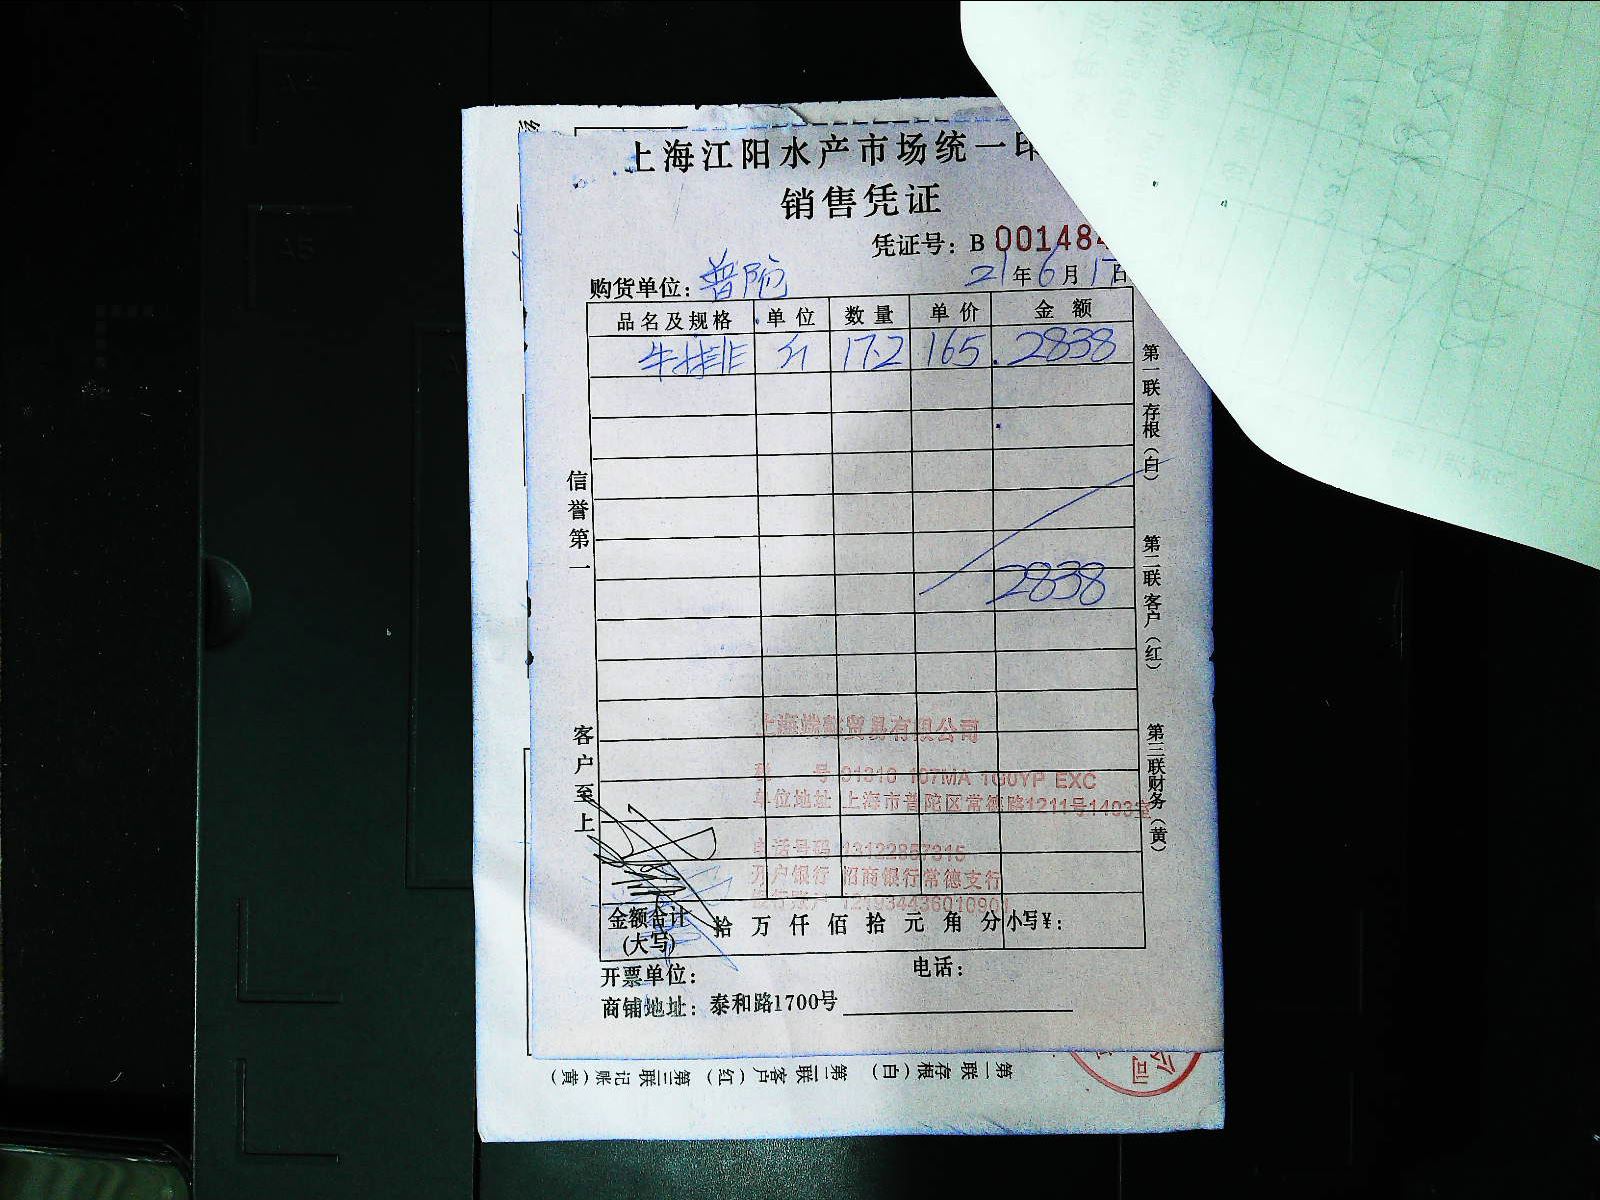 上海江阳水产市场统一印
销售凭证
凭证号：B 00148
购货单位：普陀 21年6月17日
品名及规格 单位 数量 单价 金额
牛排 斤 17.2 165 2838
2838
信誉第一
客户至上
第一联存根（白）
第二联客户（红）
第三联财务（黄）
贸易有限公司
号 107MA 1G0YP EXC
单位地址 上海市普陀区常德路1211号1403室
电话号码 13122857315
开户银行 招商银行常德支行
金额合计 拾 万 仟 佰 拾 元 角 分 小写¥：
(大写)
开票单位： 电话：
商铺地址：泰和路1700号
第一联存根(白) 第二联客户(红) 第三联记账(黄)
公司